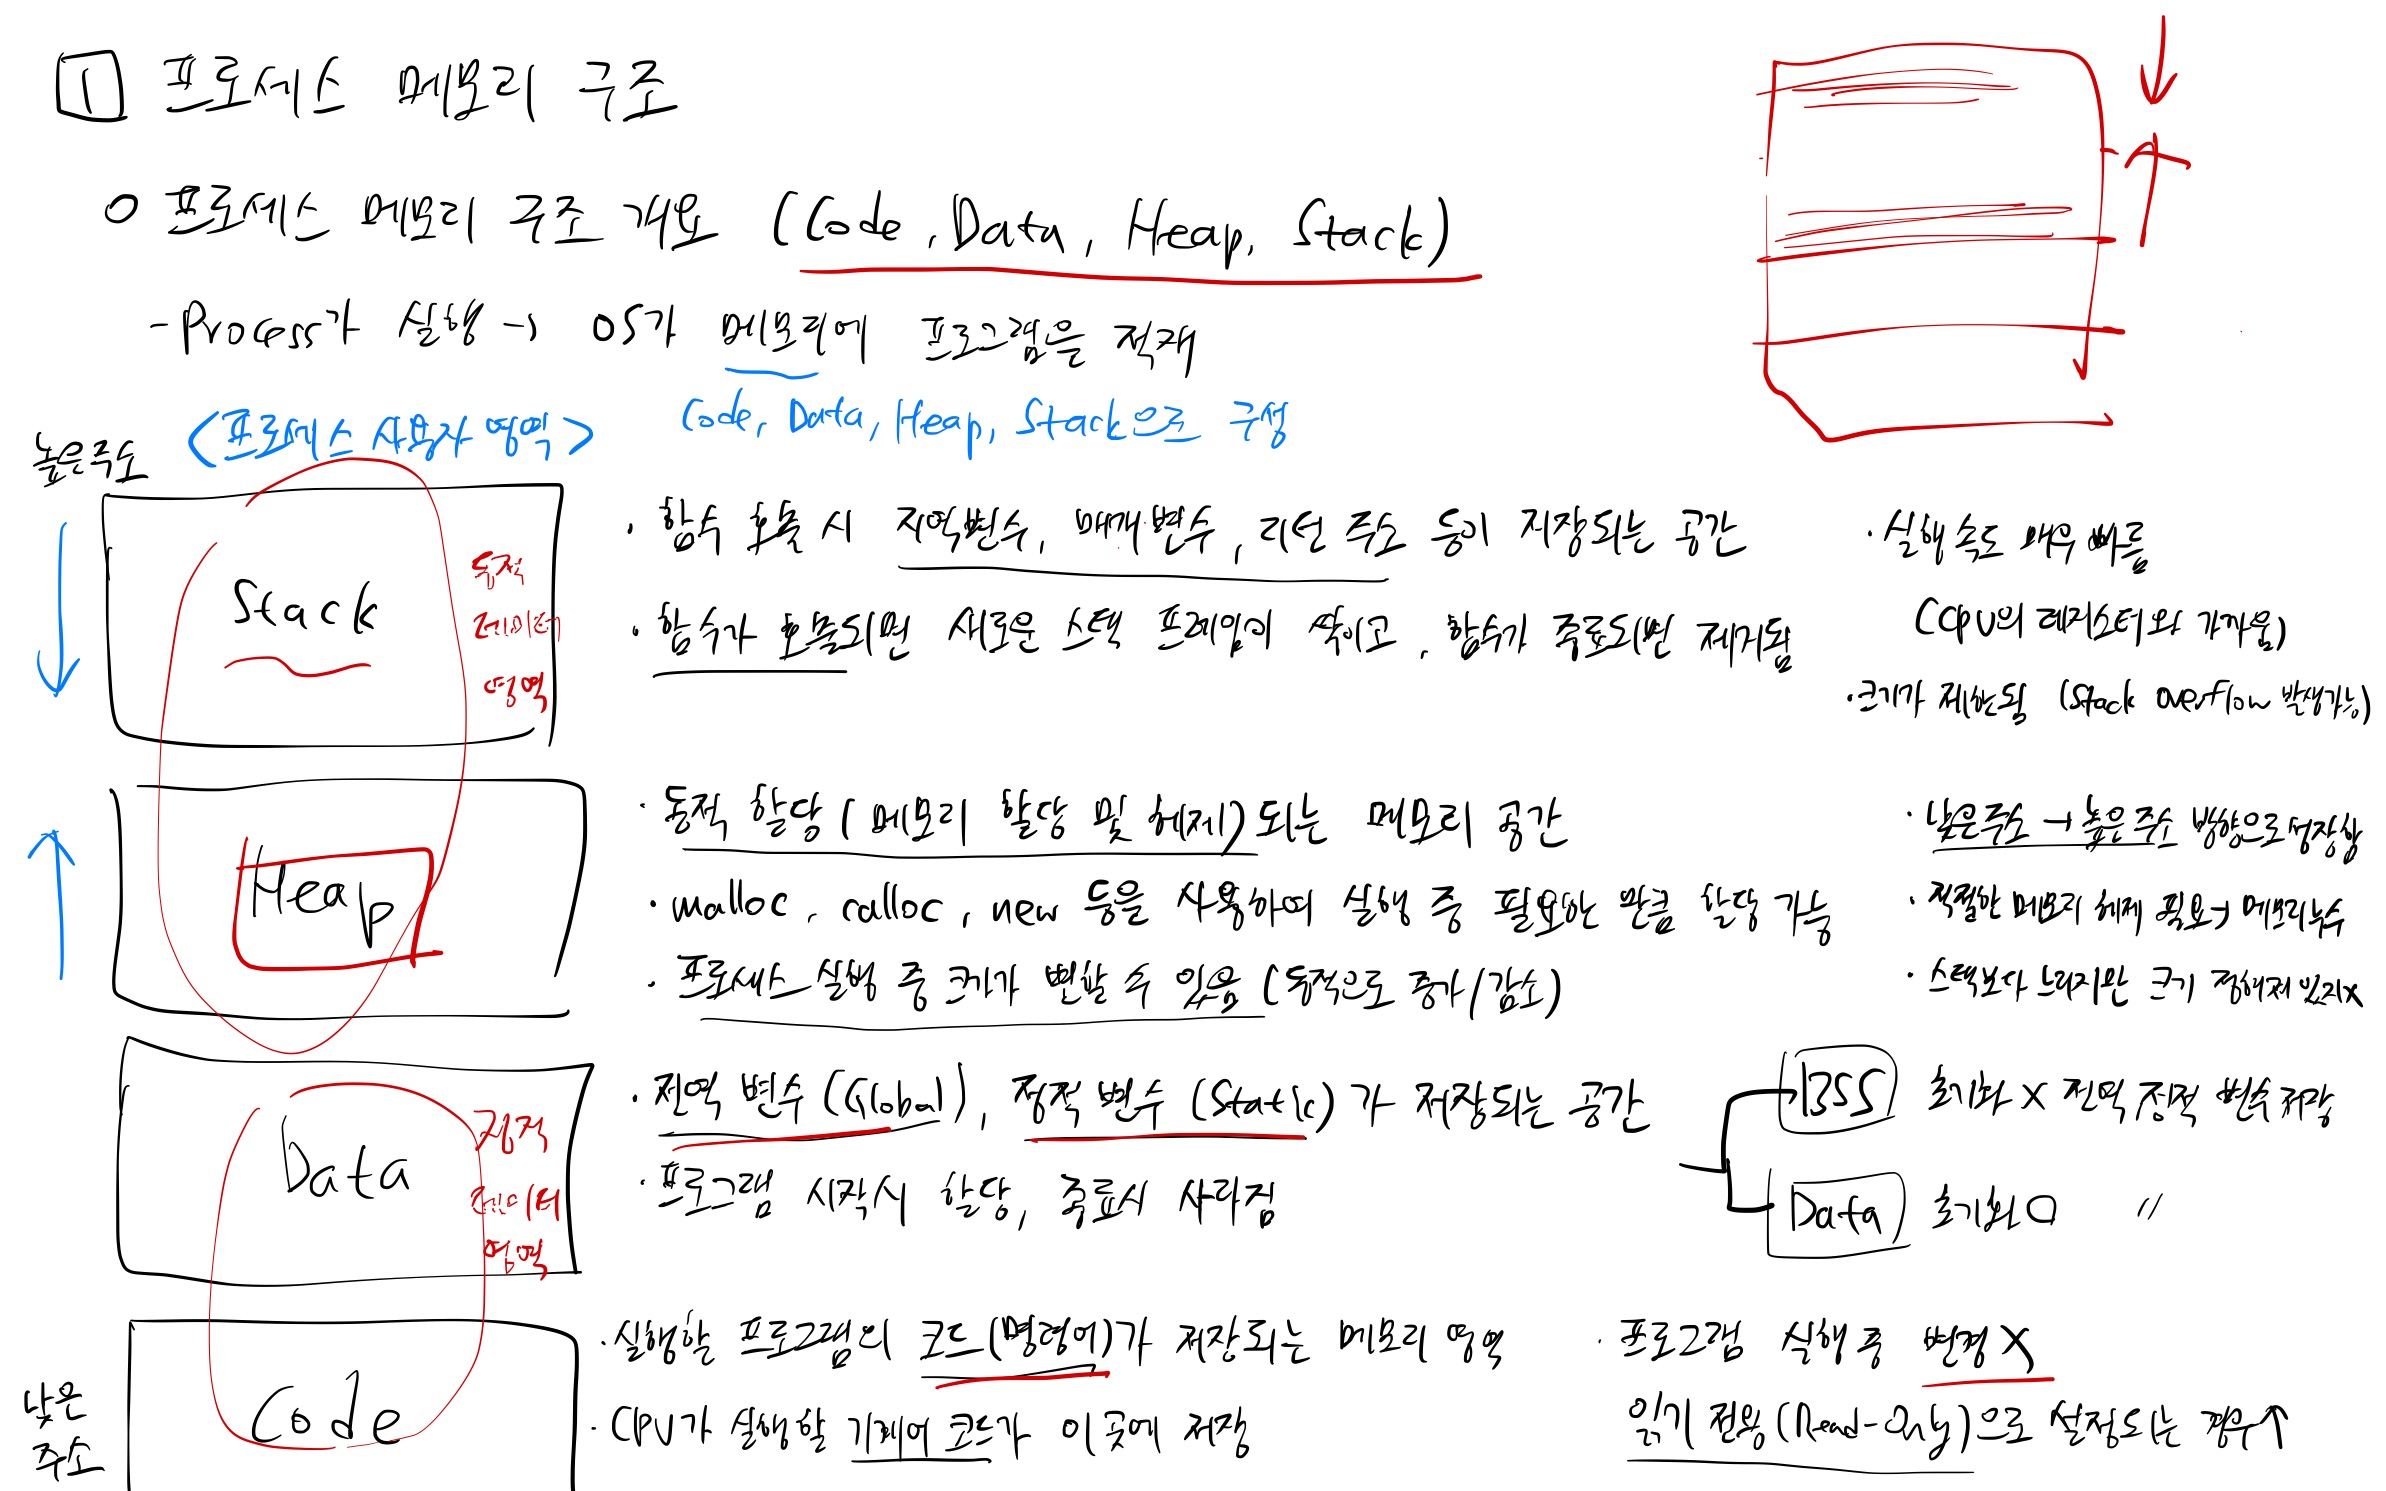 1 프로세스 메모리 구조
○ 프로세스 메모리 구조 개요 (Code, Data, Heap, Stack)
- Process가 실행 → OS가 메모리에 프로그램을 적재
Code, Data, Heap, Stack으로 구성
<프로세스 사용자 영역>
높은주소
Stack
동적
데이터
영역
· 함수 호출 시 지역변수, 매개변수, 리턴 주소 등이 저장되는 공간
· 함수가 호출되면 새로운 스택 프레임이 쌓이고, 함수가 종료되면 제거됨
· 실행속도 매우 빠름
(CPU의 레지스터와 가까움)
· 크기가 제한됨 (Stack overflow 발생가능)
Heap
· 동적 할당 (메모리 할당 및 해제)되는 메모리 공간
· malloc, calloc, new 등을 사용하여 실행 중 필요한 만큼 할당 가능
· 프로세스 실행 중 크기가 변할 수 있음 (동적으로 증가/감소)
· 낮은주소 → 높은주소 방향으로 성장함
· 적절한 메모리 해제 필요→ 메모리누수
· 스택보다 느리지만 크기 정해져있지x
Data
정적
데이터
영역
· 전역 변수 (Global), 정적 변수 (Static)가 저장되는 공간
· 프로그램 시작시 할당, 종료시 사라짐
BSS 초기화 X 전역 정적 변수 저장
Data 초기화 O 〃
낮은
주소
Code
· 실행할 프로그램의 코드(명령어)가 저장되는 메모리 영역
· CPU가 실행할 기계어 코드가 이곳에 저장
· 프로그램 실행 중 변경 X
읽기 전용 (Read-Only)으로 설정되는 경우↑